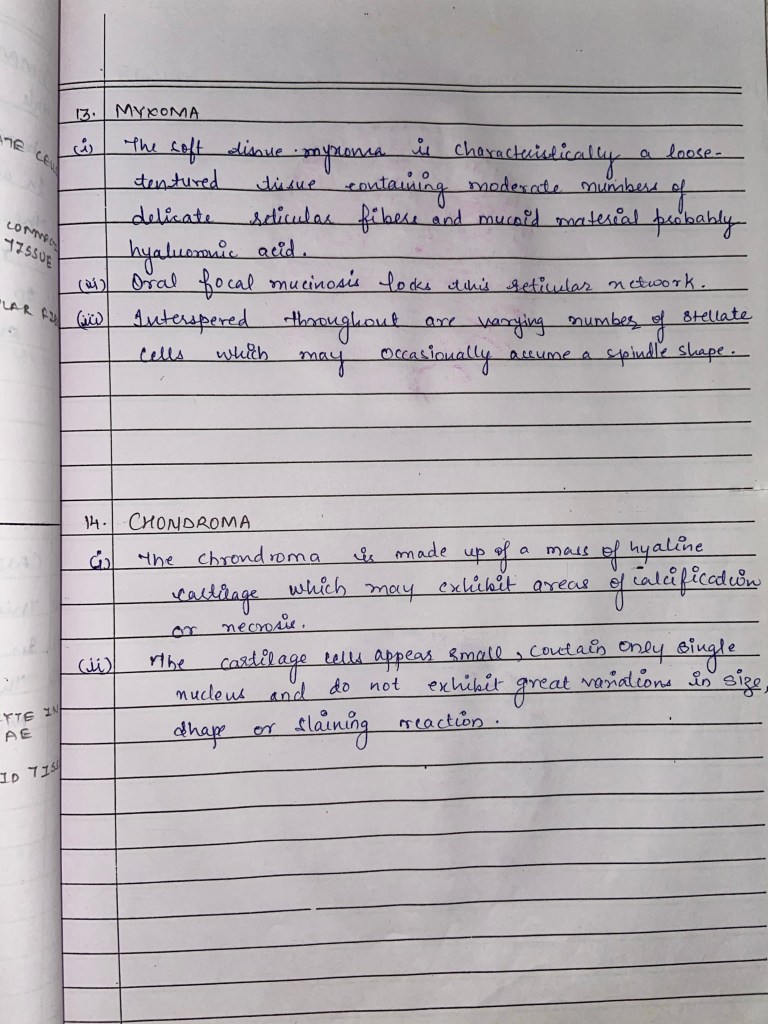 13. MYXOMA
(i) The soft tissue myxoma is characteristically a loose-
textured tissue containing moderate numbers of
delicate reticular fibers and mucoid material probably
hyaluoronic acid.
(ii) Oral focal mucinosis locks this reticular network.
(iii) Interspered throughout are varying number of stellate
cells which may occasionally assume a spindle shape.
14. CHONDROMA
(i) The chrondroma is made up of a mass of hyaline
cartilage which may exhibit areas of calcification
or necrosis.
(ii) The cartilage cells appear small, contain only single
nucleus and do not exhibit great variations in size,
shape or staining reaction.
TISSUE
YTE IN
AE